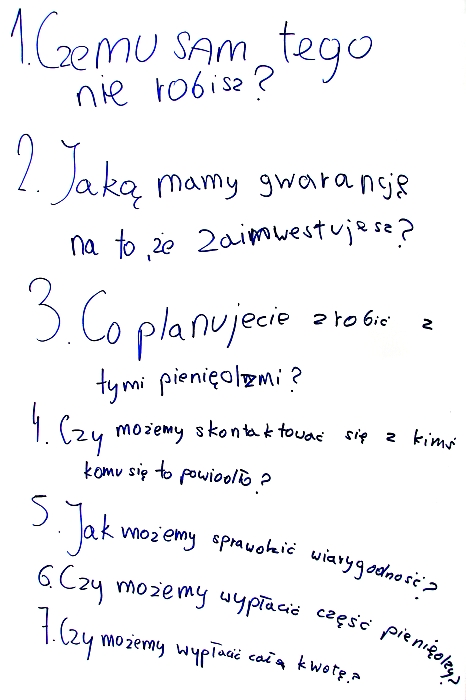 1. Czemu sam tego
nie robisz?
2. Jaką mamy gwarancję
na to, że zainwestujesz?
3. Co planujecie zrobić z
tymi pieniędzmi?
4. Czy możemy skontaktować się z kimś
komu się to powiodło?
5. Jak możemy sprawdzić wiarygodność?
6. Czy możemy wypłacić część pieniędzy?
7. Czy możemy wypłacić całą kwotę?